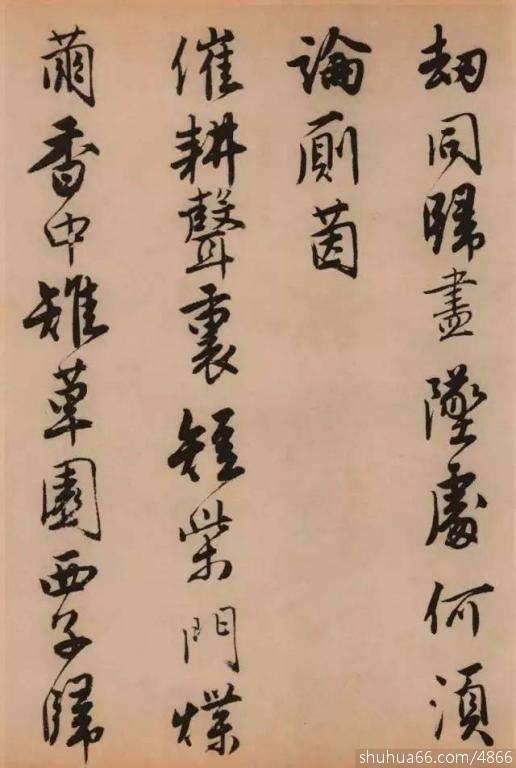 刼同歸盡墜處何須
論厠茵
催耕聲裏短柴門煠
繭香中雉草園西子歸
shuhua66.com/4866